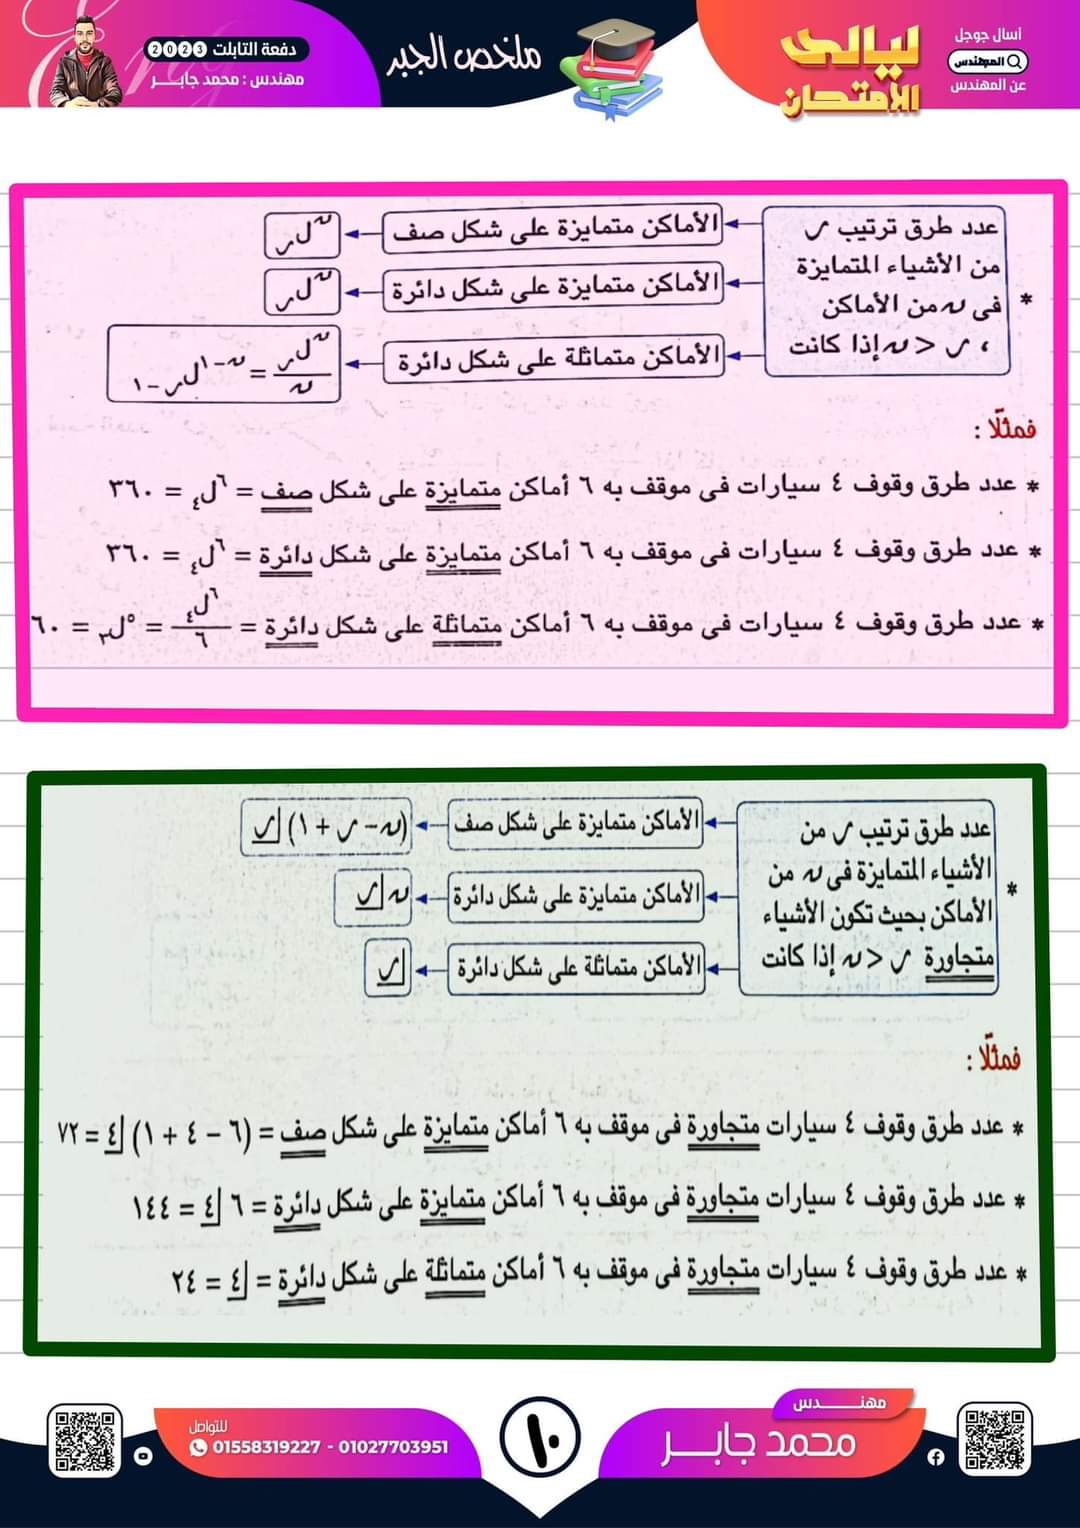 اسأل جوجل
المهندس
عن المهندس
ليالى
الامتحان
ملخص الجبر
دفعة التابلت 2023
مهندس : محمد جابـــر
* عدد طرق ترتيب ر
من الأشياء المتمايزة
فى ن من الأماكن
، ر < ن إذا كانت
الأماكن متمايزة على شكل صف ← ⁿلر
الأماكن متمايزة على شكل دائرة ← ⁿلر
الأماكن متماثلة على شكل دائرة ← ⁿلر / ن = ⁿ⁻¹لر-١
فمثلًا :
* عدد طرق وقوف ٤ سيارات فى موقف به ٦ أماكن متمايزة على شكل صف = ⁶ل₄ = ٣٦٠
* عدد طرق وقوف ٤ سيارات فى موقف به ٦ أماكن متمايزة على شكل دائرة = ⁶ل₄ = ٣٦٠
* عدد طرق وقوف ٤ سيارات فى موقف به ٦ أماكن متماثلة على شكل دائرة = ⁶ل₄ / ٦ = ⁵ل₃ = ٦٠
* عدد طرق ترتيب ر من
الأشياء المتمايزة فى ن من
الأماكن بحيث تكون الأشياء
متجاورة ر < ن إذا كانت
الأماكن متمايزة على شكل صف ← (ن - ر + ١) ⌊ر
الأماكن متمايزة على شكل دائرة ← ن ⌊ر
الأماكن متماثلة على شكل دائرة ← ⌊ر
فمثلًا :
* عدد طرق وقوف ٤ سيارات متجاورة فى موقف به ٦ أماكن متمايزة على شكل صف = (٦ - ٤ + ١) ⌊٤ = ٧٢
* عدد طرق وقوف ٤ سيارات متجاورة فى موقف به ٦ أماكن متمايزة على شكل دائرة = ٦ ⌊٤ = ١٤٤
* عدد طرق وقوف ٤ سيارات متجاورة فى موقف به ٦ أماكن متماثلة على شكل دائرة = ⌊٤ = ٢٤
مهنـــــدس
محمد جابـــر
١٠
للتواصل
01558319227 - 01027703951